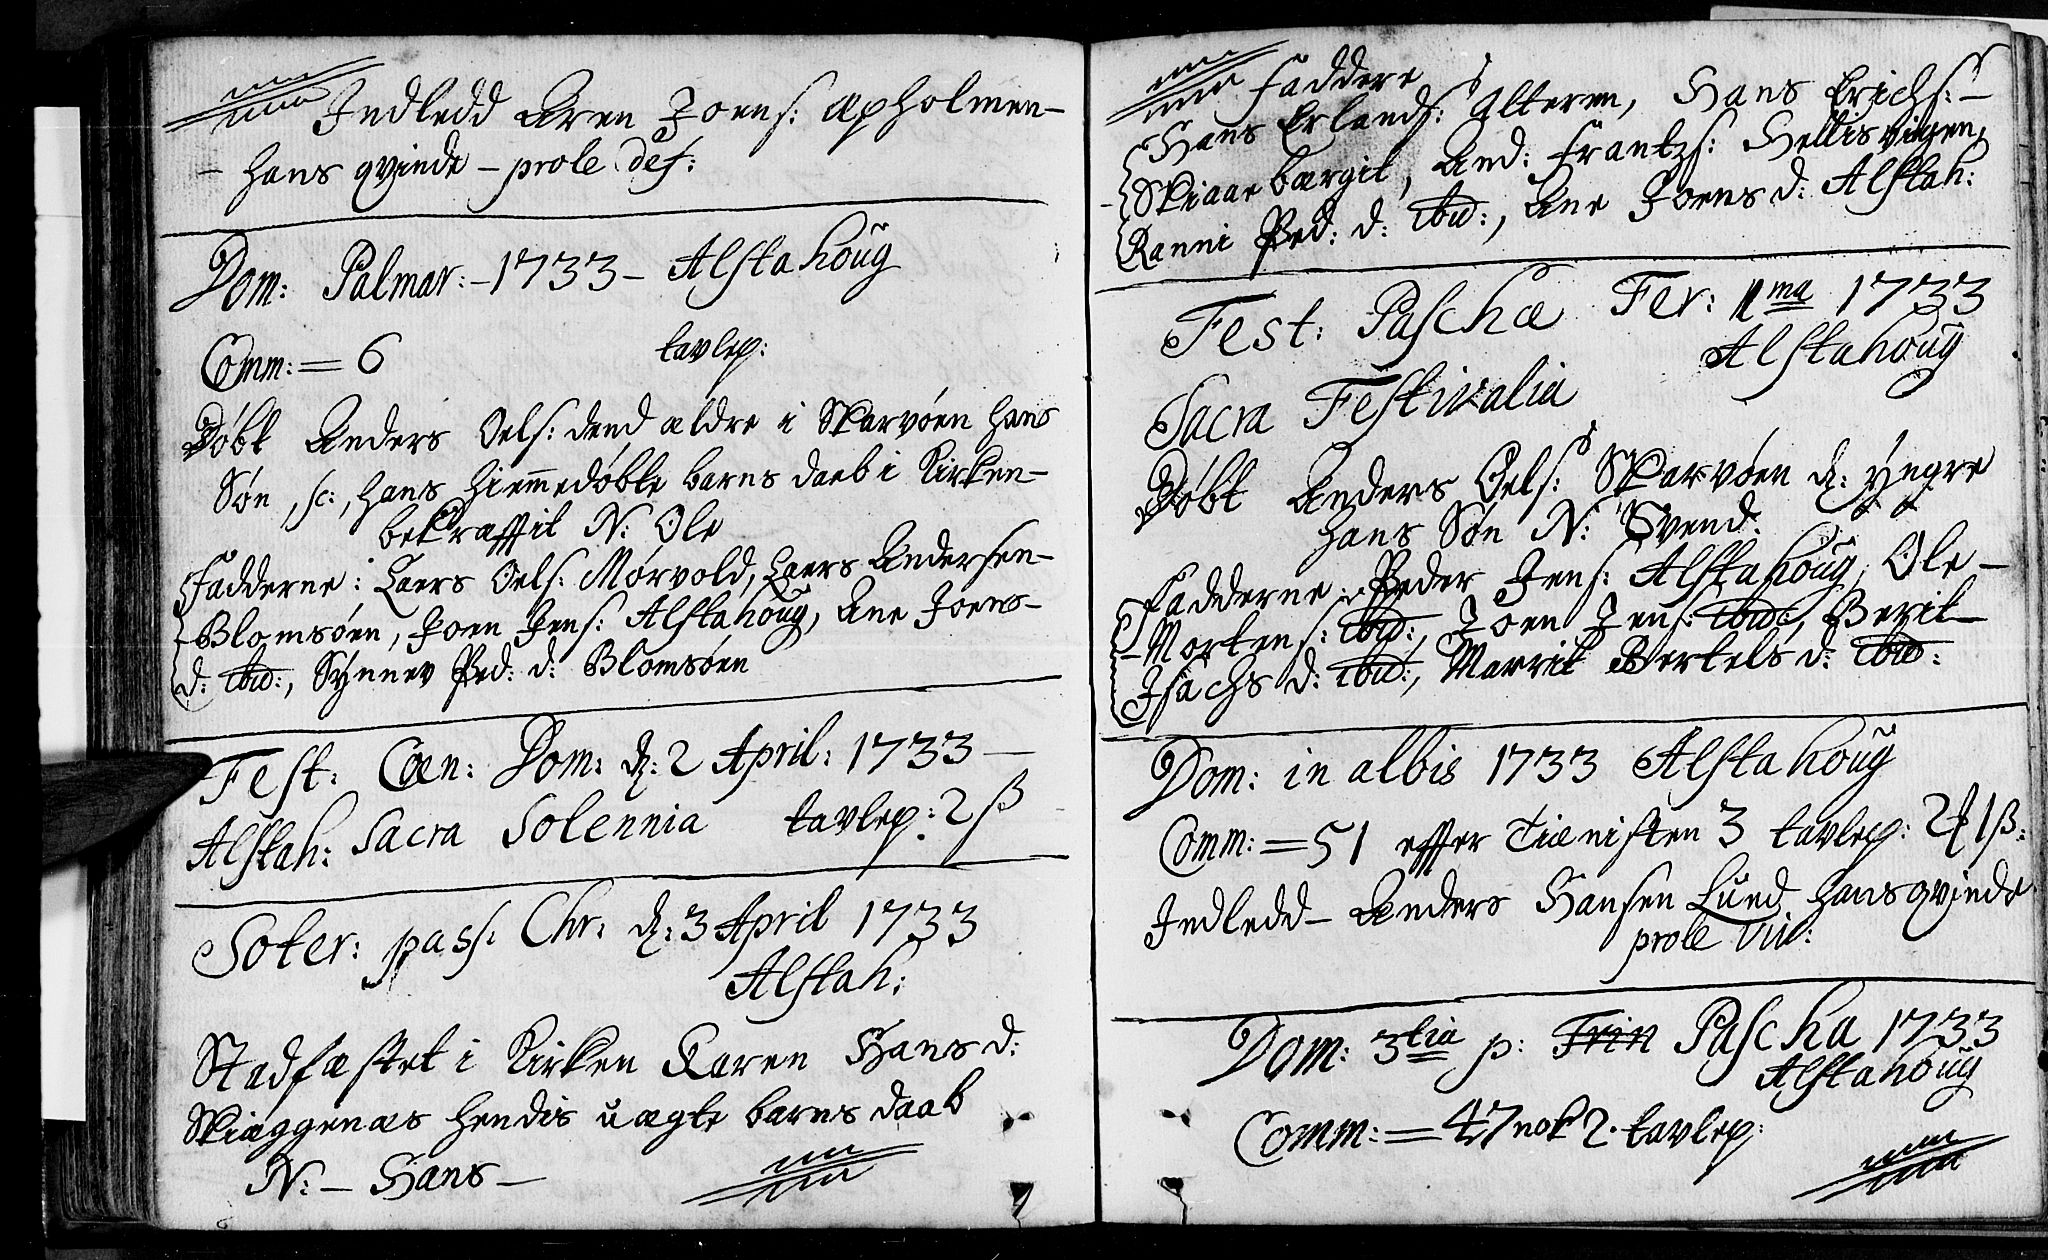 Indledd Aren Joens: Apholmen-
- hans qvinde - prole def:
Dom: Palmar: - 1733 - Alstahoug
Comm: = 6 tavlep:
Døbt Anders Oels: dend ældre i Skarvøen hans
Søn, sc:, hans hiemmedøbte barns daab i Kirken-
bekræfftit N: Ole
Fadderne: Laers Oels: Mørvold, Laers Andersen-
Blomsøen, Joen Jens: Alstahoug, Ane Joens-
d: ibid:, Synnev Ped: d: Blomsøen
Fest: Coen: Dom: d: 2 April: 1733 -
Alstah: Sacra Solennia tavlep: 2 ß
Soter: pass: Chr: d: 3 April 1733
Alstah:
Stadfæstet i Kirken Karen Hans d:
Skiæggenæs hendis uægte barns daab
N: - Hans -
Faddere
Hans Erlands: Alteren, Hans Erichs: -
Skiaarbærgit, And: Frantzs: Hellisvigen,
Ranni Ped: d: ibid:, Ane Joens d: Alstah:
Fest: Paschæ Fer: 1ma 1733
Alstahoug
Sacra Festivalia
Døbt Anders Oels: Skarvøen d: yngre
hans Søn N: Svend:
Fadderne: Peder Jens: Alstahoug, Ole -
- Mortens: ibid:, Joen Jens: ibid:, Berit -
Isachs d: ibid:, Marrit Bertels d: ibid:
Dom: in albis 1733 Alstahoug
Comm: = 51 effter Tiænisten 3 tavlep: 2 1ß:
Indledd - Anders Hansen Lund hans qvinde
prole viv:
Dom: 3tia p: Trin Pascha 1733
Alstahoug
Comm: = 47 nok 2. tavlep: